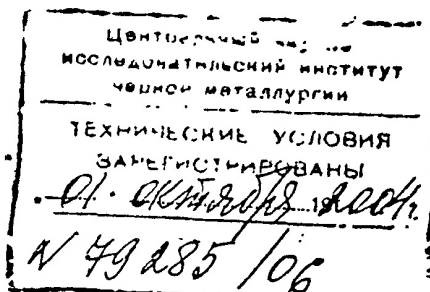 Центральный
исследовательский институт
черной металлургии
ТЕХНИЧЕСКИЕ УСЛОВИЯ
ЗАРЕГИСТРИРОВАНЫ
01. октября 2004г.
N 79285/06